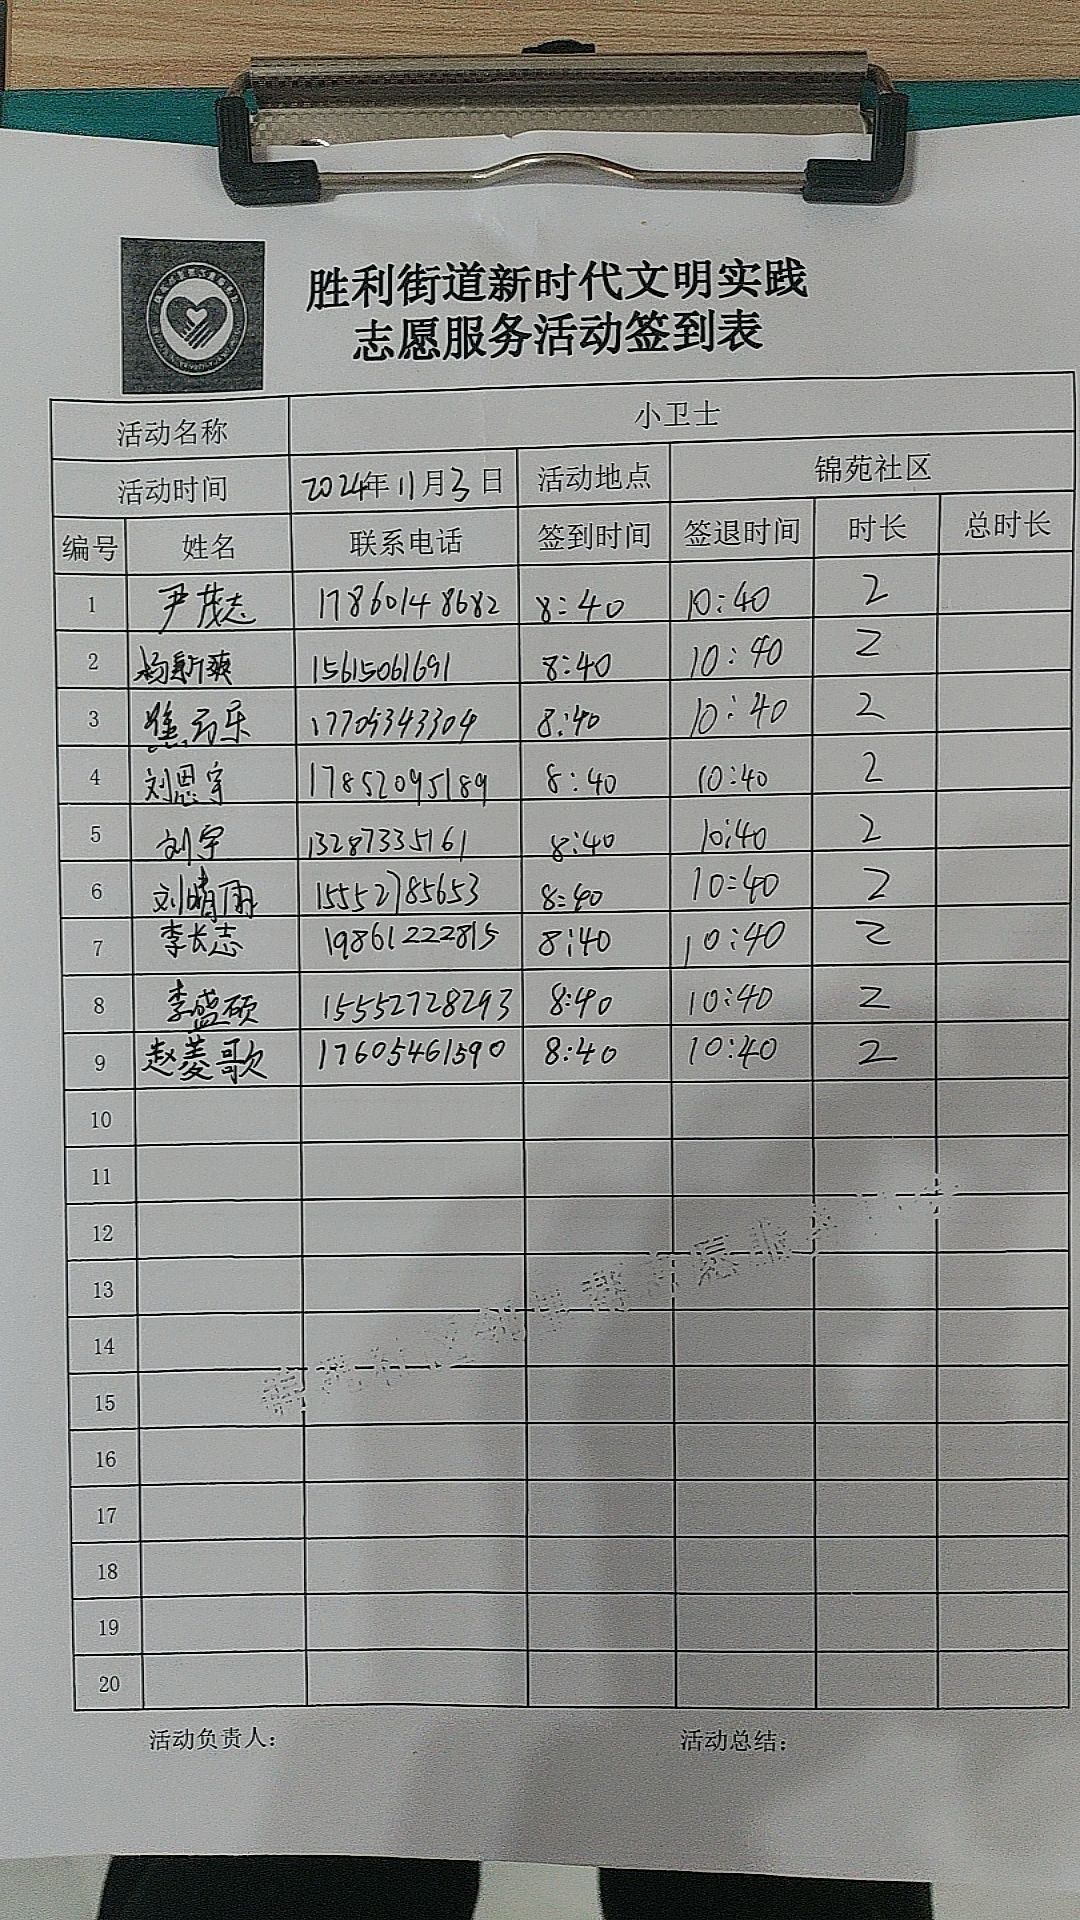 胜利街道新时代文明实践
志愿服务活动签到表
活动名称 小卫士
活动时间 2024年11月3日 活动地点 锦苑社区
编号 姓名 联系电话 签到时间 签退时间 时长 总时长
1 尹茂志 17860148682 8:40 10:40 2
2 杨新爽 15615061691 8:40 10:40 2
3 焦云乐 17705343304 8:40 10:40 2
4 刘恩宇 17852095189 8:40 10:40 2
5 刘宇 13287335161 8:40 10:40 2
6 刘晴雨 15552785653 8:40 10:40 2
7 李长志 19861222815 8:40 10:40 2
8 李盛硕 15552728293 8:40 10:40 2
9 赵菱歌 17605461590 8:40 10:40 2
10
11
12
13
14
15
16
17
18
19
20
活动负责人： 活动总结：